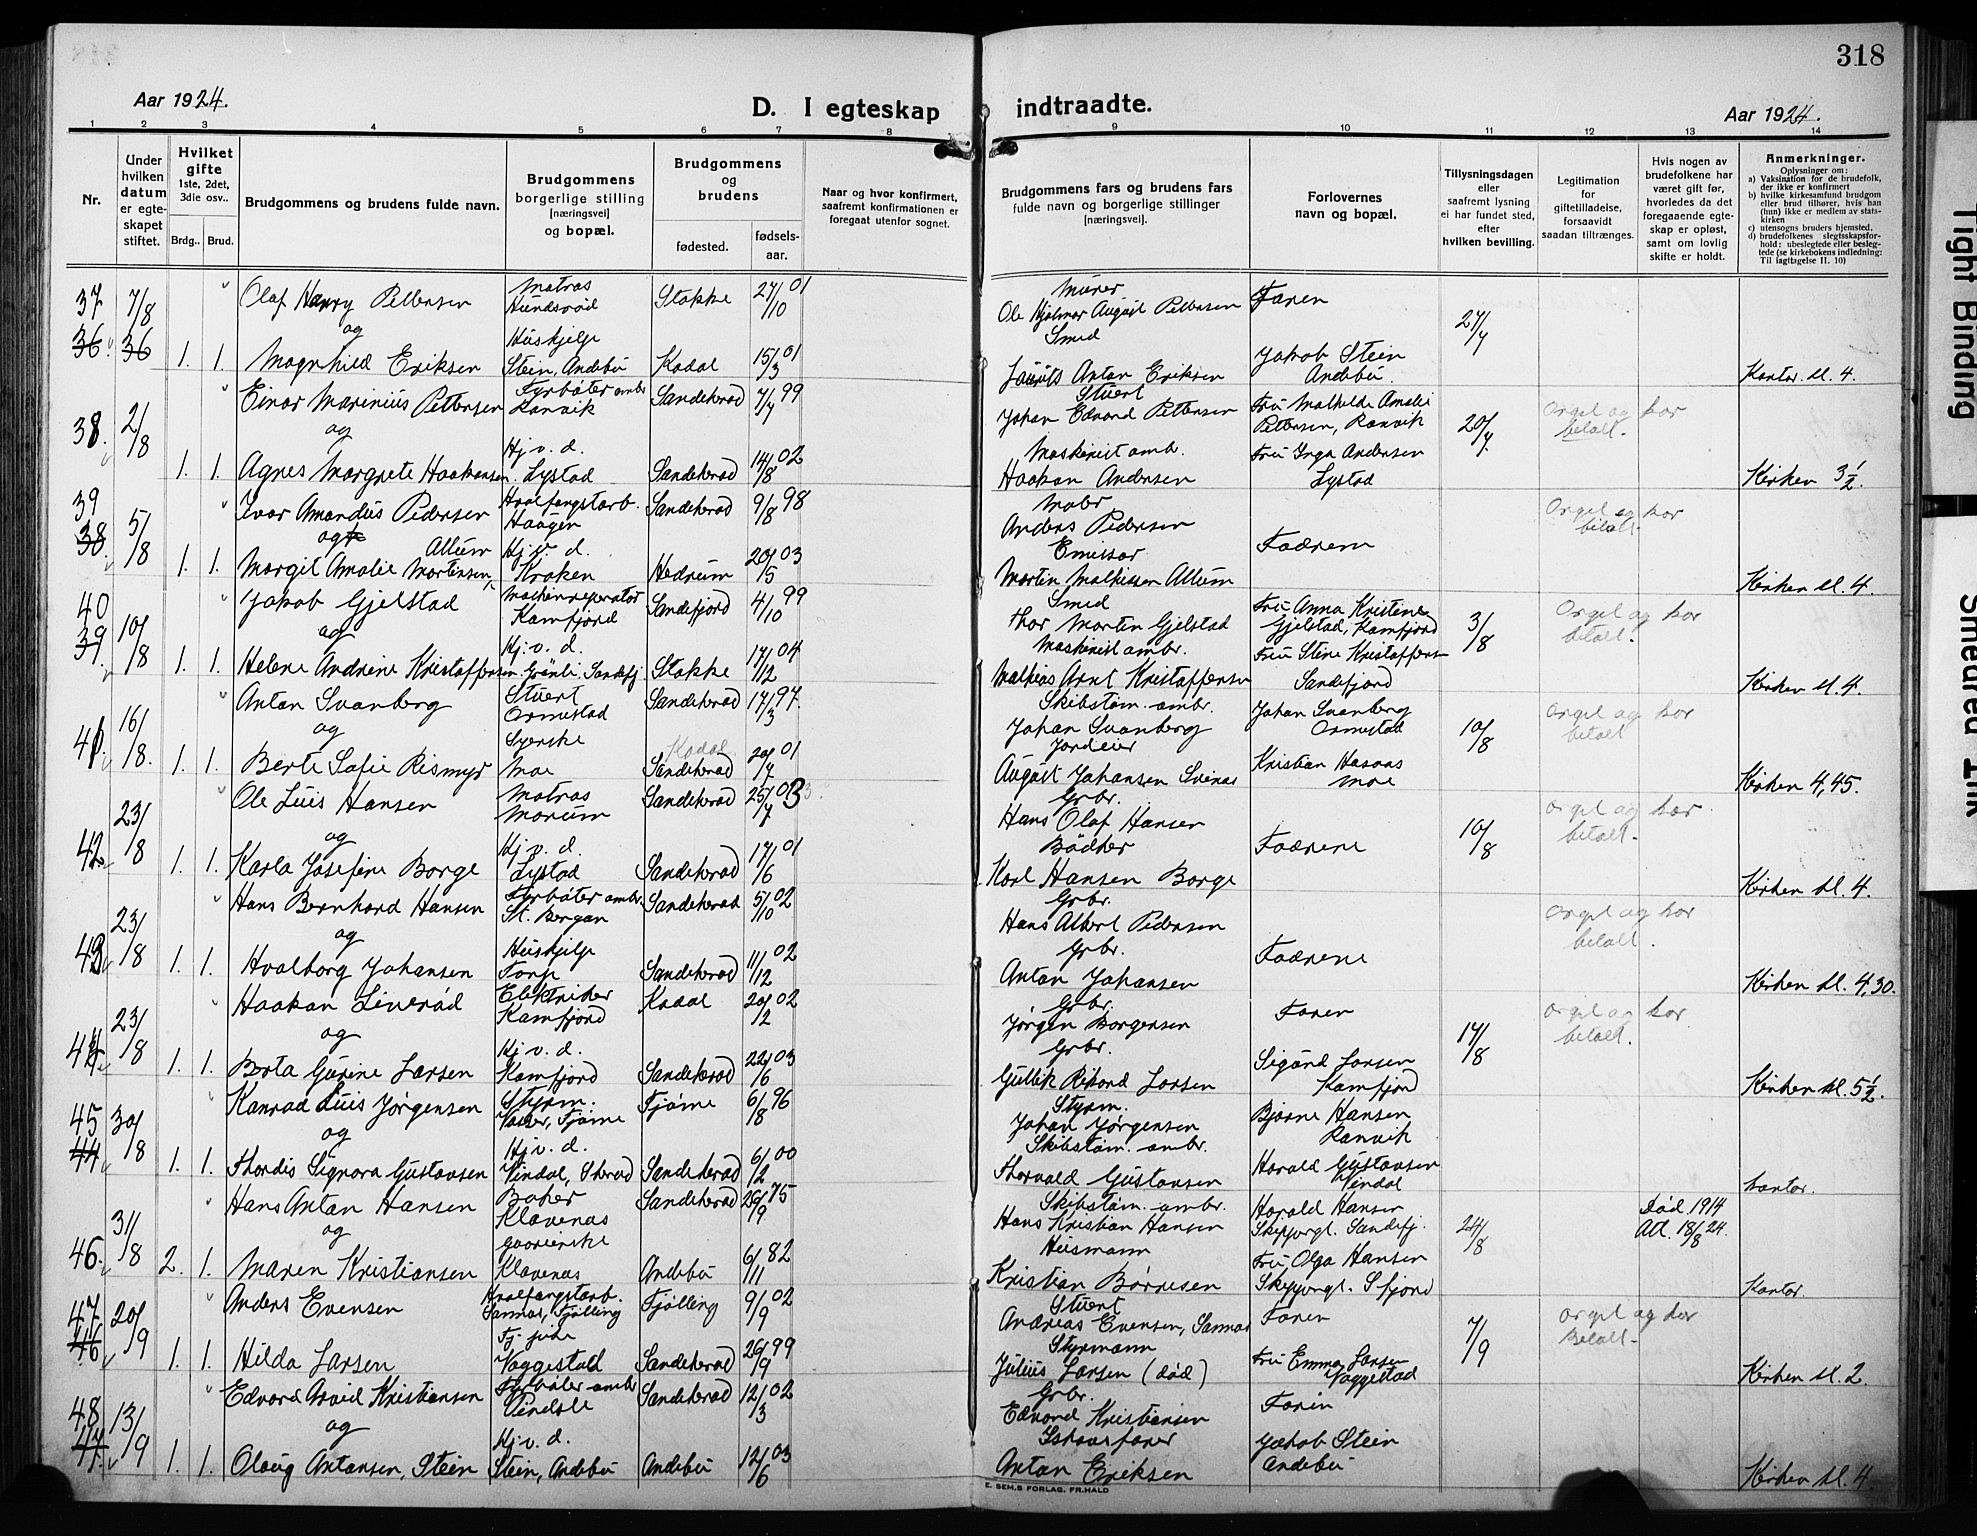 318
Aar 1924.
D. I egteskap indtraadte.
Aar 1924.
1 2 3 4 5 6 7 8 9 10 11 12 13 14
Nr.
Under hvilken datum er egteskapet stiftet.
Hvilket gifte 1ste, 2det, 3die osv..
Brdg.. Brud.
Brudgommens og brudens fulde navn.
Brudgommens borgerlige stilling [næringsvei] og bopæl.
Brudgommens og brudens
fødested. fødsels-aar.
Naar og hvor konfirmert, saafremt konfirmationen er foregaat utenfor sognet.
Brudgommens fars og brudens fars fulde navn og borgerlige stillinger [næringsvei].
Forlovernes navn og bopæl.
Tillysningsdagen eller saafremt lysning ei har fundet sted, efter hvilken bevilling.
Legitimation for giftetilladelse, forsaavidt saadan tiltrænges.
Hvis nogen av brudefolkene har været gift før, hvorledes da det foregaaende egteskap er opløst, samt om lovlig skifte er holdt.
Anmerkninger.
Oplysninger om:
a) Vaksination for de brudefolk, der ikke er konfirmert
b) hvilke kirkesamfund brudgom eller brud tilhører, hvis han (hun) ikke er medlem av statskirken
c) utensogns bruders hjemsted,
d) brudefolkenes slegtsskapsforhold: ubeslegtede eller beslegtede (se kirkebokens indledning: Til iagttagelse II. 10)
37 7/8 Olaf Henry Pettersen Matros Hundsrød Stokke 27/10 01 Murer Ole Hjalmar August Pettersen Faren 27/7
36 36 og
1. 1. Magnhild Eriksen Hushjelp Stein, Andebu Kodal 15/3 01 Smed Laurits Anton Eriksen Jakob Stein Andebu Kontor. kl. 4.
38. 2/8 Einar Marinius Pettersen Fyrbøter ombr Ranvik Sandeherad 7/7 99 Stuert Johan Edvard Pettersen Fru Mathilde Amalie Pettersen, Ranvik 20/7. Orgel og kor betalt.
og
1. 1. Agnes Margrete Haakonsen Hj. v. d. Lystad Sandeherad 14/8 02 Maskinist omb. Haakon Andersen Fru Inga Andersen Lystad Kirken 3 1/2.
39 38 5/8 Ivar Amandus Pedersen Hvalfangstarb. Haugen Sandeherad 9/8 98 Anders Pedersen Fædrene Orgel og kor betalt
og
1. 1. Margit Amalie Mortensen, Allum Hj. v. d. Kraken Hedrum 20/5 03 Emissær Martin Mathissen Allum Kirken kl. 4.
40 39. 10/8 Jakob Gjelstad Maskinreparatør Kamfjord Sandefjord 4/10 99 Smed Thor Martin Gjelstad Fru Anna Kristine Gjelstad, Kamfjord 3/8 Orgel og kor betalt.
og
1. 1. Helene Andrine Kristoffersen Hj. v. d. Grønli, Sandefj. Stokke 17/12 04 Maskinist ombr. Mathias Arnt Kristoffersen Fru Stine Kristoffersen Sandefjord Kirken kl. 4.
41. 16/8. Anton Svanberg Stuert Ormestad Sandeherad 17/3 97. Skibstøm. ombr. Johan Svanberg Johan Svanberg Ormestad 10/8 Orgel og kor betalt
og
1. 1. Berte Sofie Rismyr Syerske Moe Kodal Sandeherad 20/7 01 Jordeier August Johansen Kristian Hasaas Moe Kirken 4,45.
42 23/8 Ole Luis Hansen Matros Marum Sandeherad 25/7 03 Grbr. Hans Olaf Hansen Fædrene 10/8 Orgel og kor betalt.
og
1. 1. Karla Josefine Borge Hj. v. d. Lystad Sandeherad 17/6 01 Bødker Karl Hansen Borge Kirken kl. 4.
43 23/8 Hans Bernhard Hansen Fyrbøter ombr. St. Bergan Sandeherad 5/10 02 Grbr. Hans Albert Pedersen Fædrene Orgel og kor betalt.
og
1. 1. Hvalborg Johansen Hushjelp Torp Sandeherad 11/12 02 Grbr. Anton Johansen Kirken kl. 4,30.
44 23/8 Haakon Liverød Elektriker Kamfjord Kodal 20/2 02 Grbr. Jørgen Borgersen Faren 17/8 Orgel og kor betalt.
og
1. 1. Berta Gurine Larsen Hj. v. d. Kamfjord Sandeherad 22/6 03 Grbr. Gullik Rikard Larsen Sigurd Larsen Kamfjord Kirken kl. 5 1/2.
45 44 30/8 Konrad Luis Jørgensen Styrm. Vasser, Tjøme Tjøme 6/8 96 Styrm. Johan Jørgensen Bjarne Hansen Ranvik
og
1. 1. Thordis Signora Gustavsen Hj. v. d. Vindal, Sherad Sandeherad 6/2 00 Skibstøm. ombr. Thorvald Gustavsen Harald Gustavsen Vindal Kontor.
46. 31/8 Hans Anton Hansen Baker Klavenes Sandeherad 26/9 75 Skibstøm. ombr. Hans Kristian Hansen Harald Hansen Skippergt. Sandefj. 24/8 Død 1914 Att. 18/8 24.
og
2. 1. Maren Kristiansen Klavenes Andebu 6/11 82 Husmann Kristian Børresen Fru Olga Hansen Skippergt. Sfjord Kontor
47 46 20/9 Anders Evensen Hvalfangstarb. Sannas, Tjølling Tjølling 9/9 02 Stuert Andreas Evensen, Sannas Faren 7/9 Orgel og kor Betalt.
1. 1. Hilda Larsen Fj. pike Vaggestad Sandeherad 26/9 99 Styrmann Julius Larsen (død) Fru Emma Larsen Vaggestad Kirken kl. 2.
48 47. 13/9 Edvard Arvid Kristiansen Fyrbøter ombr Vindsle Sandeherad 12/3 02 Grbr. Edvard Kristiansen Faren
og
1. 1. Olaug Antonsen, Stein Hj. v. d. Stein, Andebu Andebu 12/6 03 Ishavsfarer Anton Eriksen Jakob Stein Andebu Kirken kl. 4.
E. SEM.S FORLAG. FR.HALD
Tight Binding
Smeared Ink